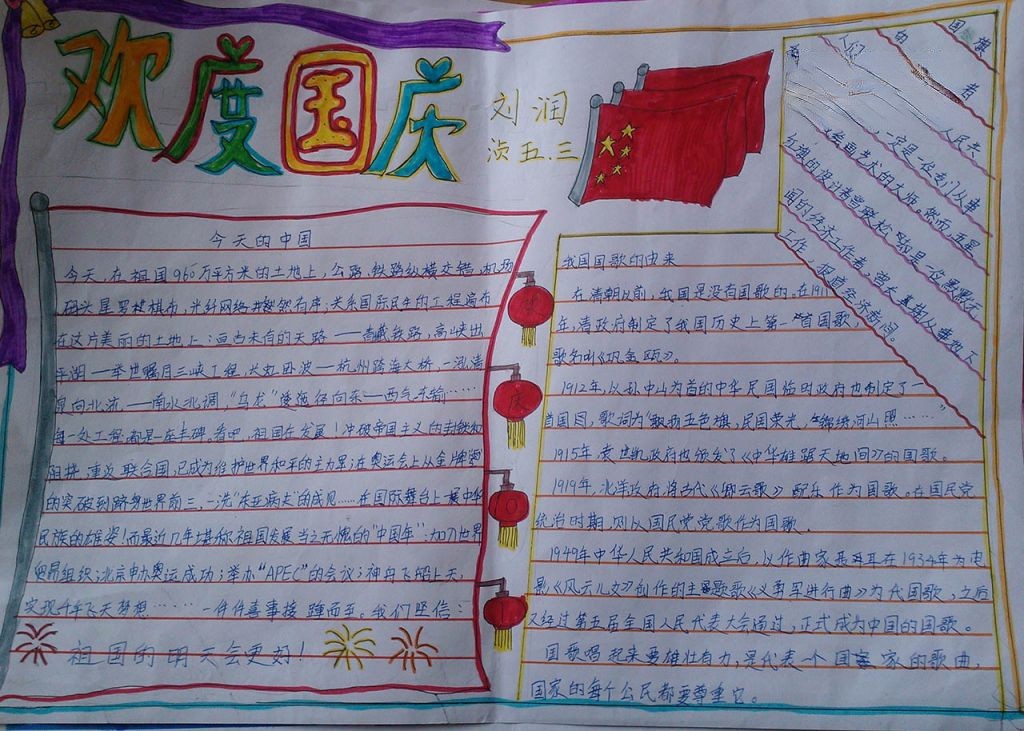 欢度国庆
刘润
浈五.三
今天的中国
今天,在祖国960万平方米的土地上,公路,铁路纵横交错,机场
码头星罗棋布,光纤网络井然有序;关系国际民生的工程遍布
在这片美丽的土地上:亘古未有的天路——青藏铁路,高峡出
平湖——举世瞩目三峡工程,长虹卧波——杭州跨海大桥,一泓清
向北流——南水北调,“乌龙”逶迤径向东——西气东输……
每一处工程都是一座丰碑,看吧,祖国在发展!冲破帝国主义的封锁和
阻挠,重返联合国,已成为维护世界和平的主力军;在奥运会上从金牌
的突破到跻身世界前三,一洗“东亚病夫”的成见……在国际舞台上一展中华
民族的雄姿!而最近几年堪称祖国发展当之无愧的“中国年”:加入世界
贸易组织;北京申办奥运成功;举办“APEC”的会议;神舟飞船上天,
实现千年飞天梦想………一件件喜事接踵而至。我们坚信:
祖国的明天会更好!
庆
我国国歌的由来
在清朝以前,我国是没有国歌的。在1911
年,清政府制定了我国历史上第一首国歌,
歌名叫《巩金瓯》。
1912年,以孙中山为首的中华民国临时政府也制定了一
首国国,歌词为“飘扬五色旗,民国荣光,锦绣河山照……”
1915年,袁世凯政府也颁发了《中华雄踞天地间》的国歌。
1919年,北洋政府将古代《卿云歌》配乐作为国歌。在国民党
统治时期,则以国民党党歌作为国歌。
1949年中华人民共和国成立后,以作曲家聂耳在1934年为电
影《风云儿女》创作的主题歌歌《义勇军进行曲》为代国歌,之后
又经过第五届全国人民代表大会通过,正式成为中国的国歌。
国歌唱起来要雄壮有力,是代表一个国家的歌曲,
国家的每个公民都要尊重它。
人们的国旗
者
人民共
,一定是一位专门从事
绘画艺术的大师。然而,五星
红旗的设计者曾联松同志却是一位默默无
闻的经济工作者,曾大基期从事地下
工作,担负经济新闻。